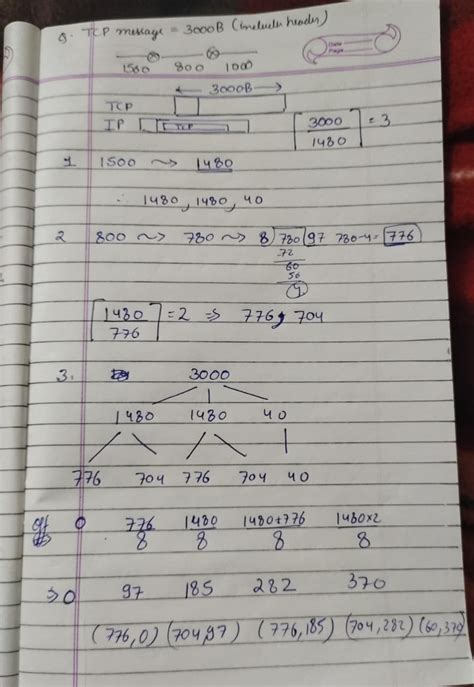 Q. TCP message = 3000B (includes header)
Date
Page
1500 800 1000
3000B
TCP
IP TCP
⌈3000/1480⌉ = 3
1 1500 ⤳ 1480
∴ 1480, 1480, 40
2 800 ⤳ 780 ⤳ 8 | 780 | 97 780-4= 776
72
60
56
4
⌈1480/776⌉ = 2 ⇒ 776, 704
3. 3000
1480 1480 40
776 704 776 704 40
off 0 776/8 1480/8 1480+776/8 1480×2/8
⇒ 0 97 185 282 370
(776,0) (704,97) (776,185) (704,282) (60,370)